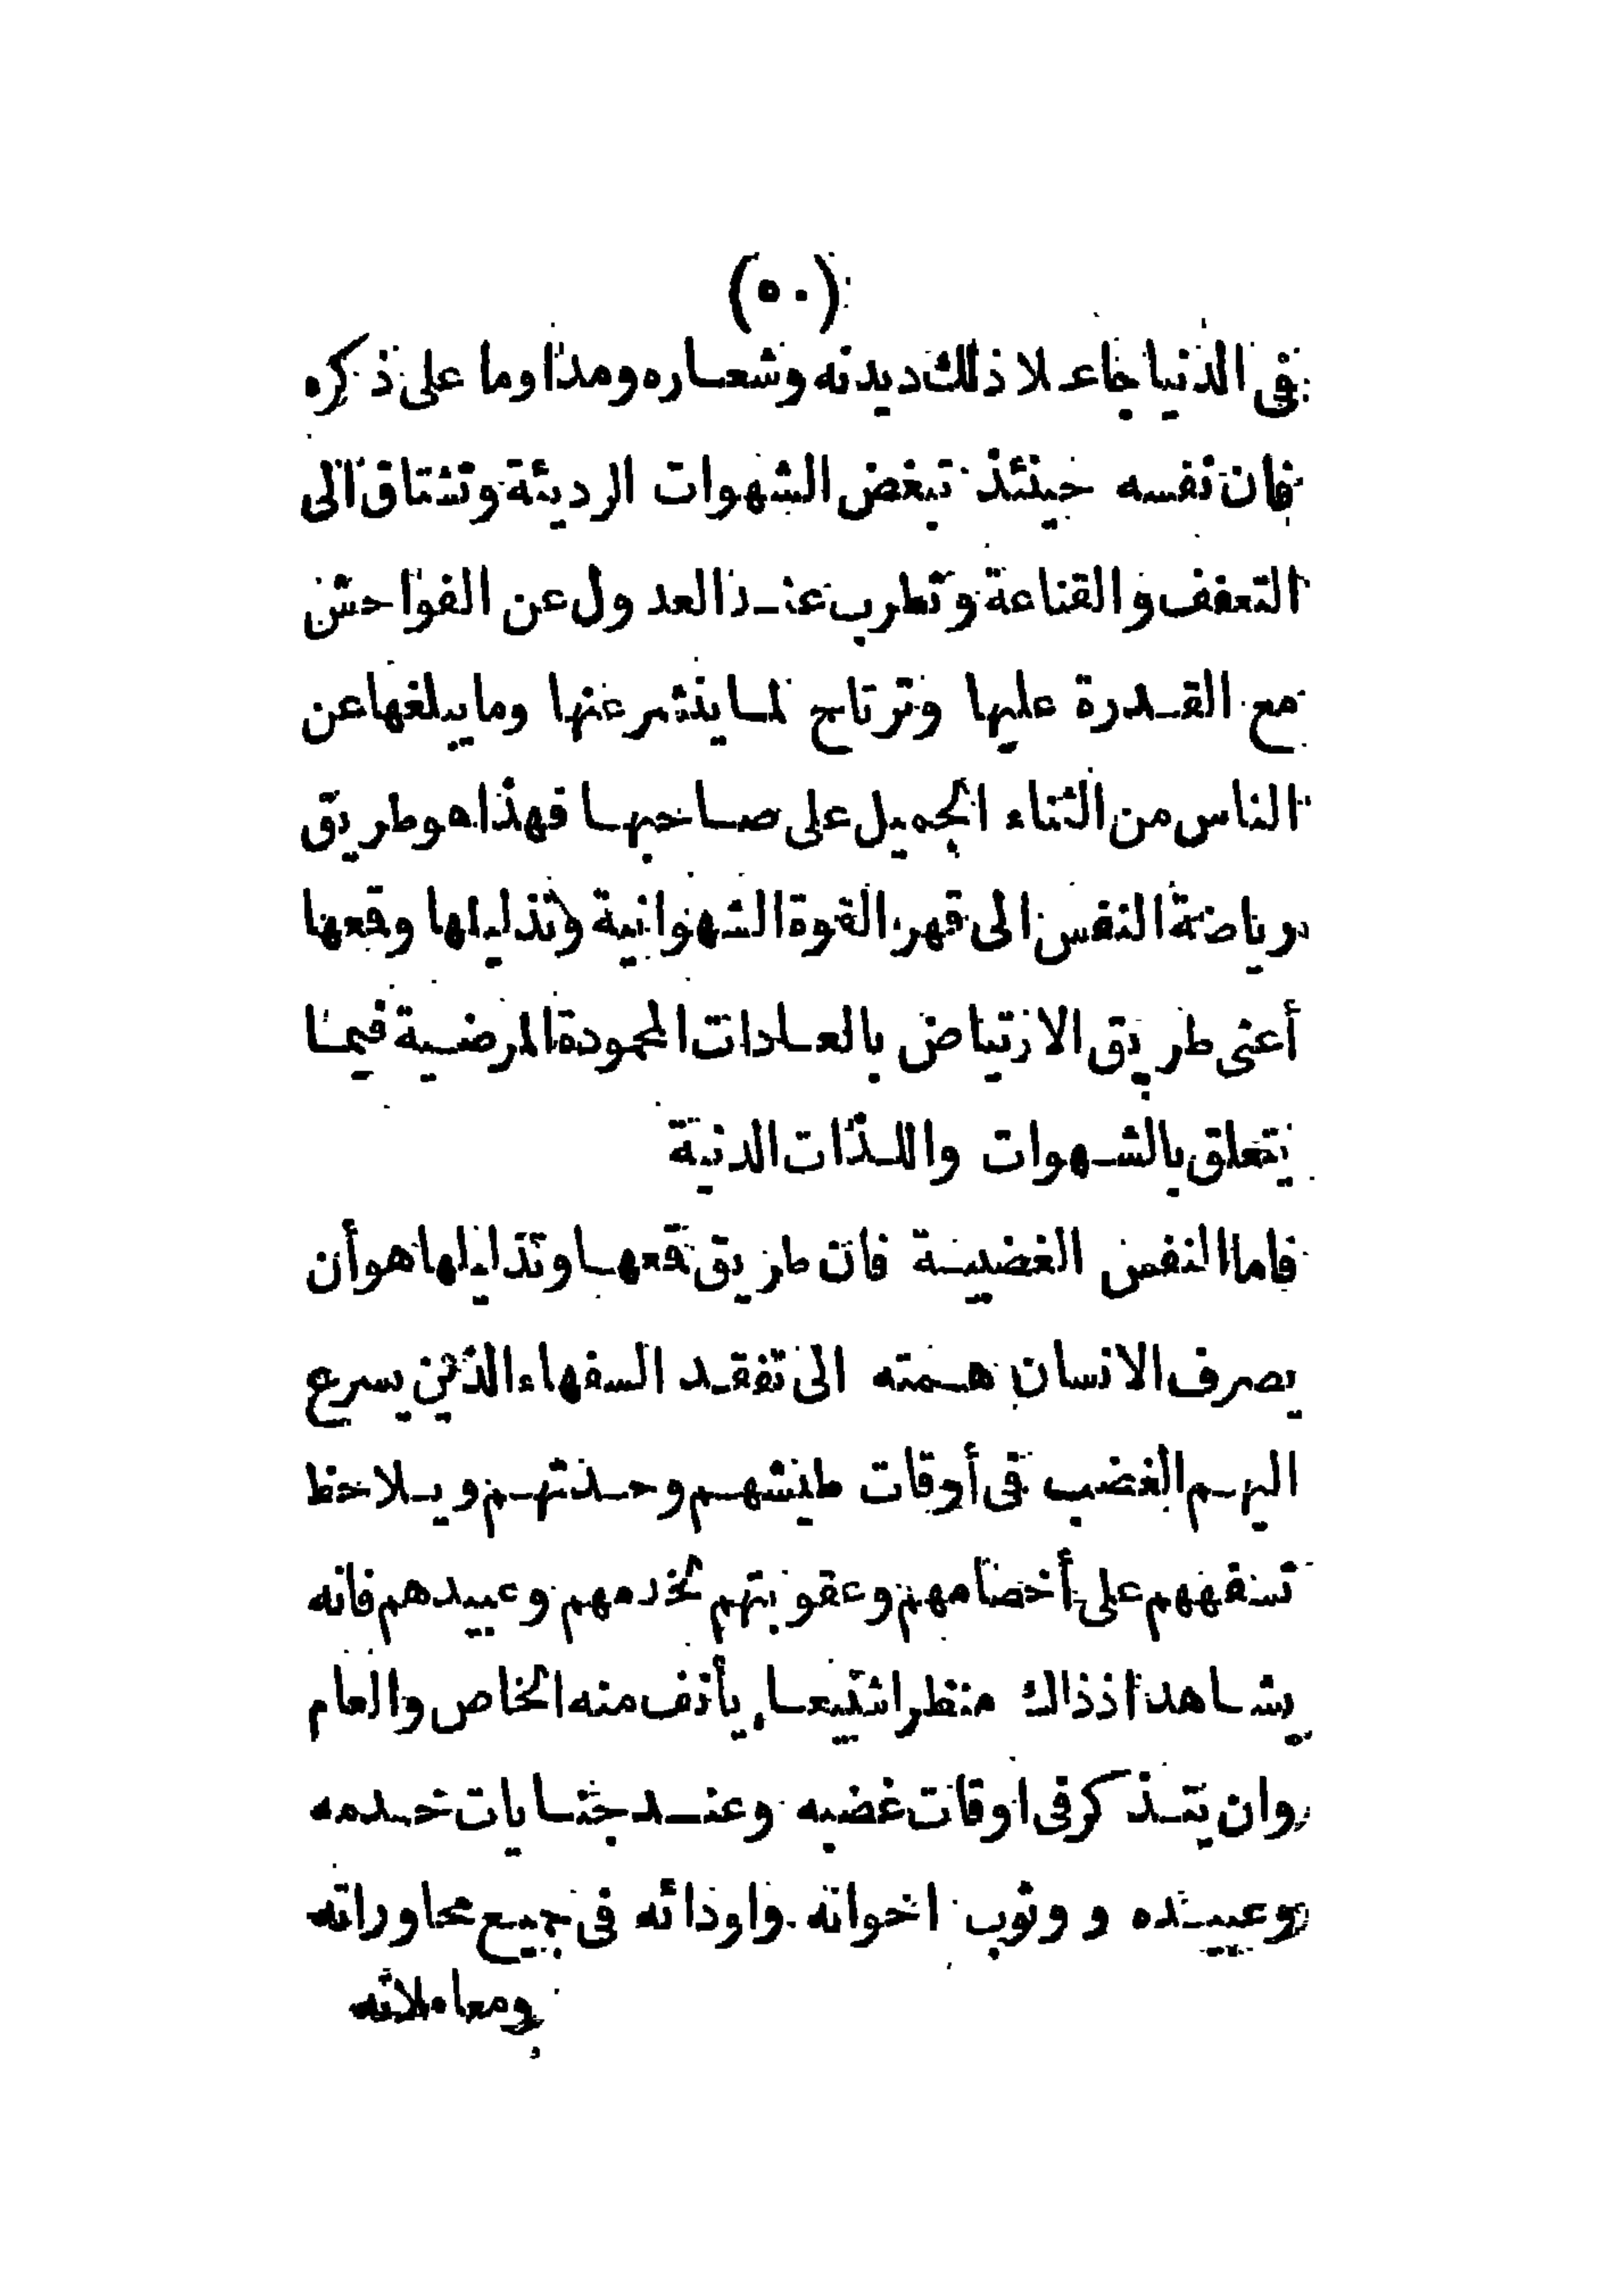 (٥٠)
في الدنيا جاعلا ذلك ديدنه وشعاره ومداوما على ذكره
فان نفسه حينئذ تبغض الشهوات الرديئة وتشتاق الى
التعفف والقناعة وتطرب عند العدول عن الفواحش
مع القدرة عليها وترتاح لما ينشر عنها وما يبلغها عن
الناس من الثناء الجميل على صاحبها فهذا هو طريق
رياضة النفس الى قهر القوة الشهوانية وتذليلها وقمعها
أعنى طريق الارتياض بالعادات المحمودة المرضية فيما
يتعلق بالشهوات واللذات الدنية
فاما النفس الغضبية فان طريق قمعها وتذليلها هو أن
يصرف الانسان همته الى تفقد السفهاء الذين يسرع
اليهم الغضب في أوقات طيشهم وحدتهم ويلاحظ
تسفههم على أخصامهم وعقوبتهم لخدمهم وعبيدهم فانه
يشاهد اذ ذاك منظرا شنيعا يأنف منه الخاص والعام
وان يتذكر في اوقات غضبه وعند جنايات خدمه
وعبيده ووثوب اخوانه واودائه في جميع محاوراته
ومعاملاته